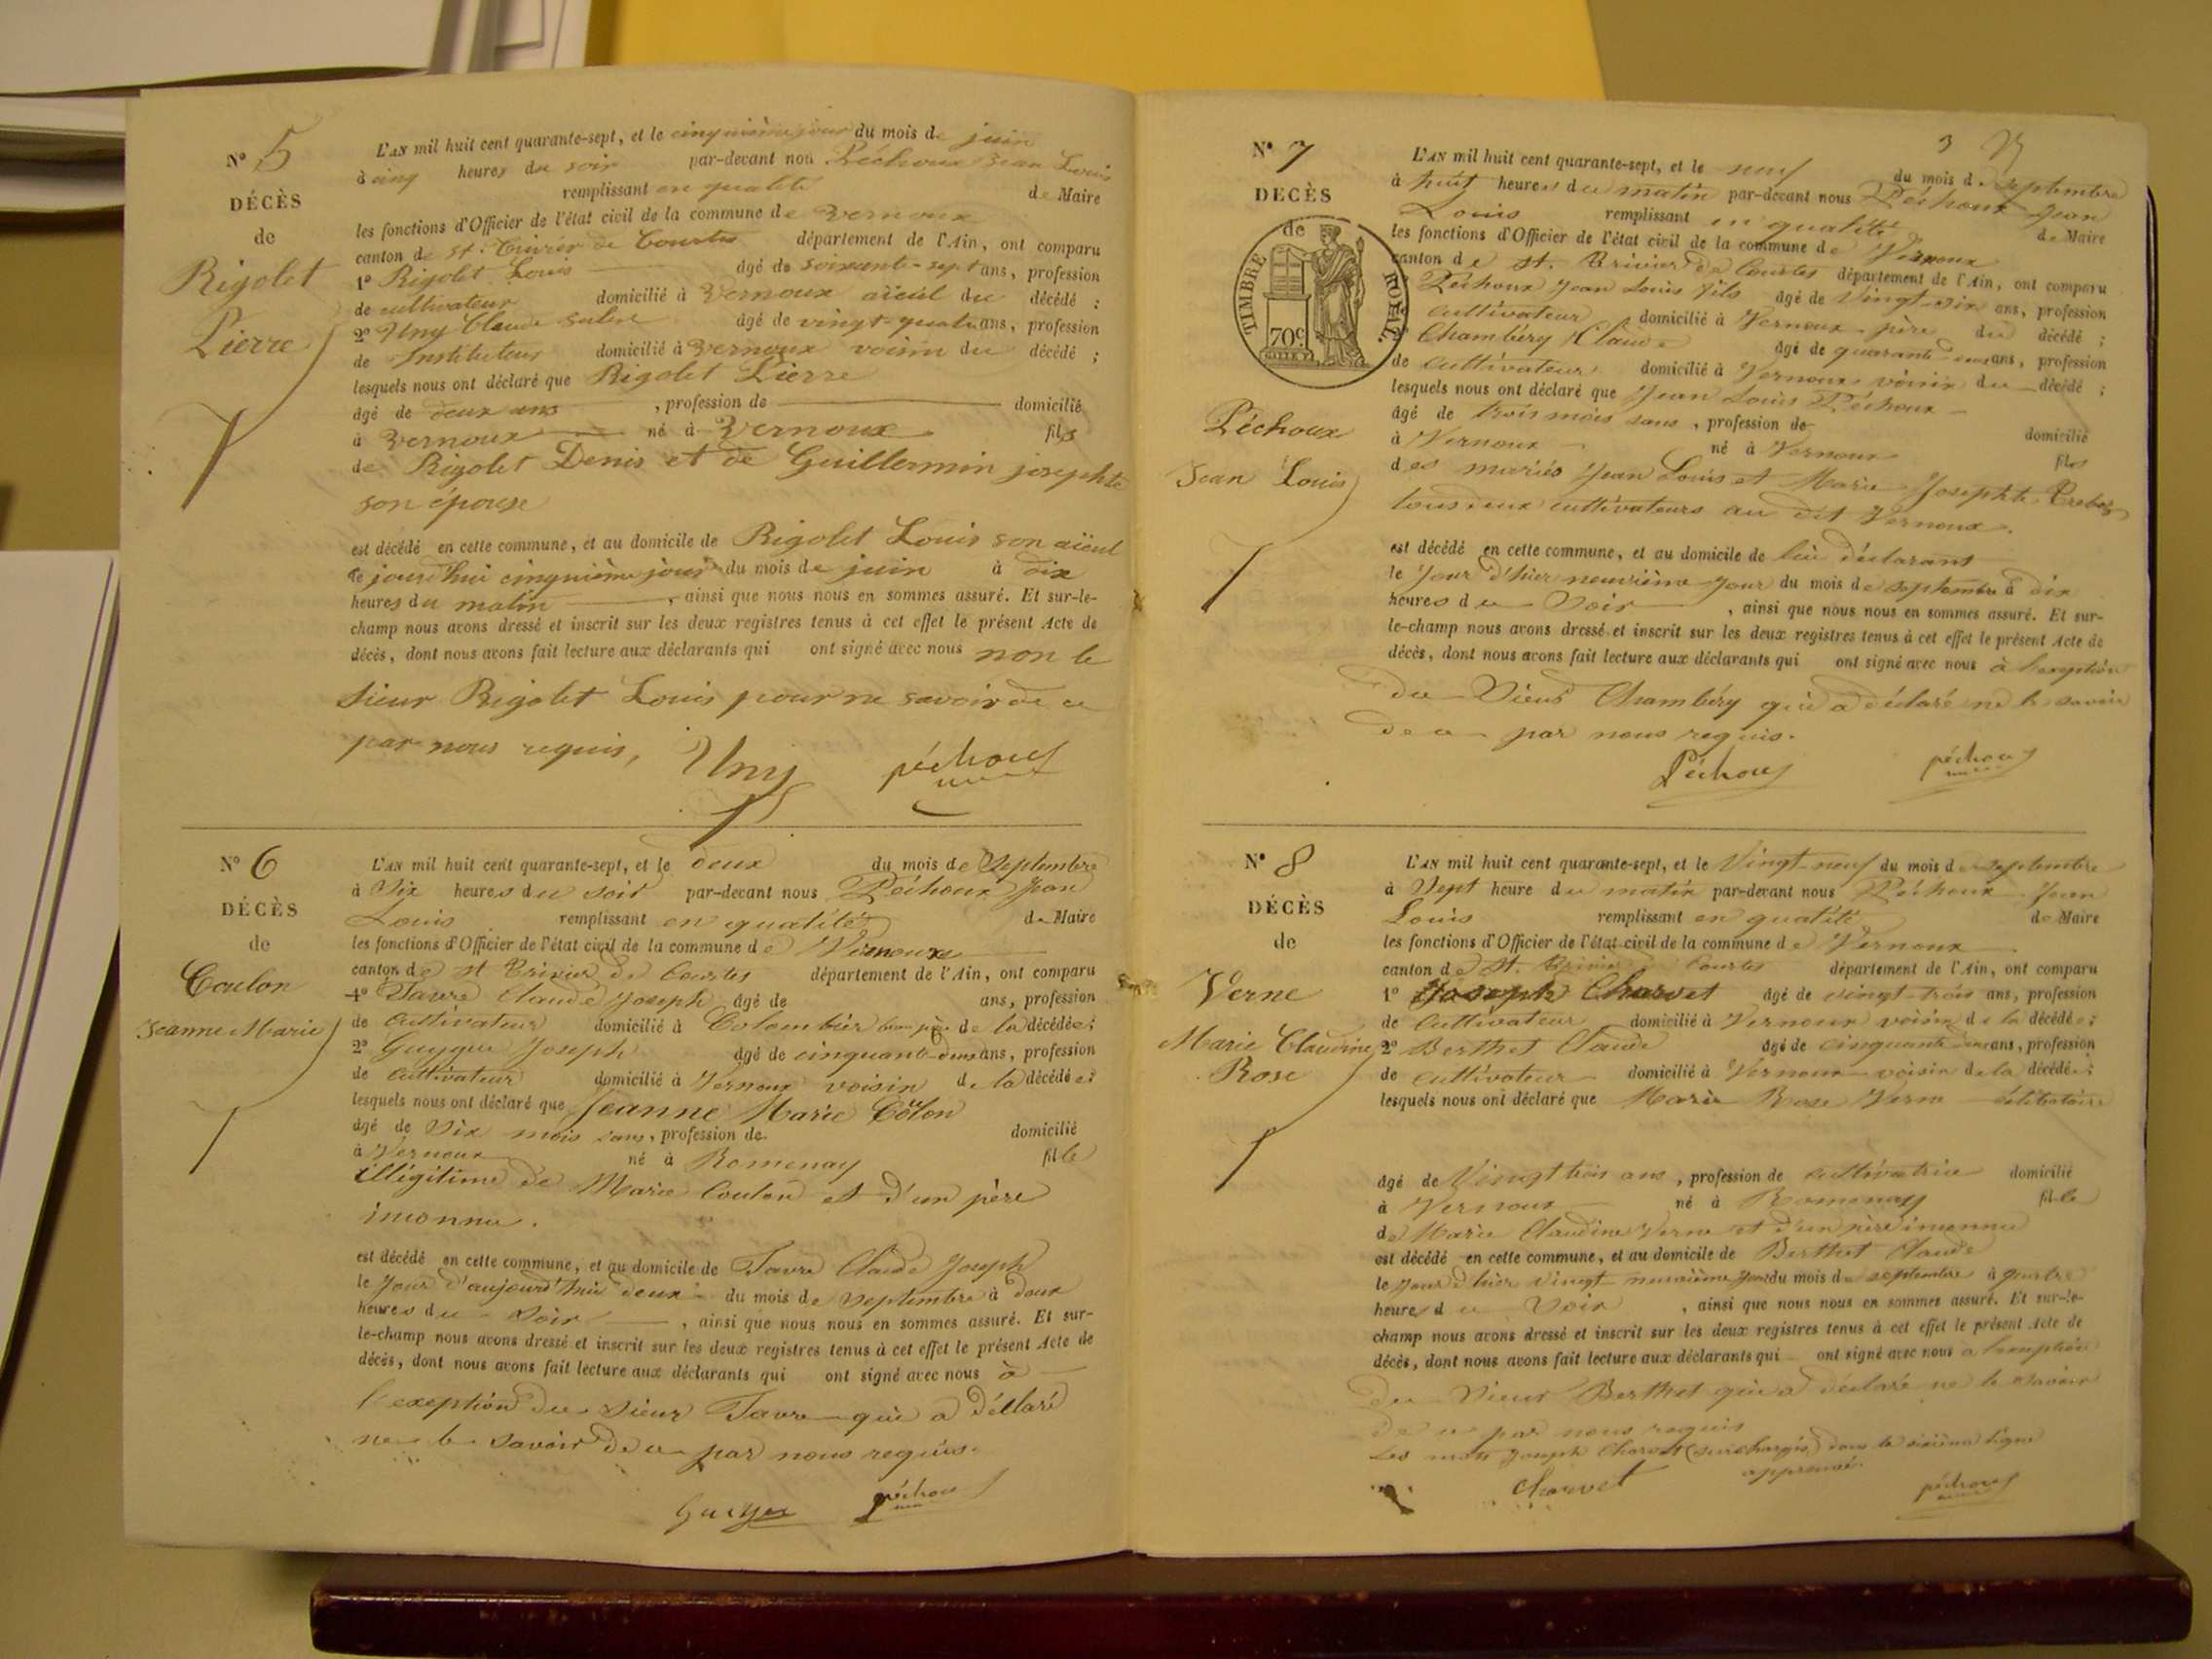 N° 5
DÉCÈS
de
Rigolet
Pierre
L'AN mil huit cent quarante-sept, et le cinquième jour du mois de juin
à cinq heures du soir par-devant nou Péchoux Jean Louis
remplissant en qualité de Maire
les fonctions d'Officier de l'état civil de la commune de Vernoux
canton de St. Trivier de Courtes département de l'Ain, ont comparu
1° Rigolet Louis âgé de soixante-sept ans, profession
de cultivateur domicilié à Vernoux aïeul du décédé ;
2° Uny Claude âgé de vingt-quatre ans, profession
de Instituteur domicilié à Vernoux voisin du décédé ;
lesquels nous ont déclaré que Rigolet Pierre
âgé de deux ans , profession de domicilié
à Vernoux né à Vernoux fils
de Rigolet Denis et de Guillermin josephte
son épouse
est décédé en cette commune, et au domicile de Rigolet Louis son aïeul
le jourd'hui cinquième jour du mois de juin à dix
heures du matin , ainsi que nous nous en sommes assuré. Et sur-le-
champ nous avons dressé et inscrit sur les deux registres tenus à cet effet le présent Acte de
décès, dont nous avons fait lecture aux déclarants qui ont signé avec nous non le
sieur Rigolet Louis pour ne savoir de ce
par nous requis,
Uny péchoux
N° 6
DÉCÈS
de
Coulon
Jeanne Marie
L'AN mil huit cent quarante-sept, et le deux du mois de Septembre
à Six heures du soir par-devant nous Péchoux Jean
Louis remplissant en qualité de Maire
les fonctions d'Officier de l'état civil de la commune de Vernoux
canton de St Trivier de Courtes département de l'Ain, ont comparu
1° Favre Claude Joseph âgé de ans, profession
de Cultivateur domicilié à Colombier de la décédée ;
2° Guygue Joseph âgé de cinquante-deux ans, profession
de Cultivateur domicilié à Vernoux voisin de la décédée ;
lesquels nous ont déclaré que Jeanne Marie Coulon
âgé de Six mois sans, profession de domicilié
à Vernoux né à Romenay fille
illégitime de Marie Coulon et d'un père
inconnu.
est décédé en cette commune, et au domicile de Favre Claude Joseph
le Jour d'aujourd'hui deux du mois de Septembre à deux
heures du Soir , ainsi que nous nous en sommes assuré. Et sur-
le-champ nous avons dressé et inscrit sur les deux registres tenus à cet effet le présent Acte de
décès, dont nous avons fait lecture aux déclarants qui ont signé avec nous à
l'exeption du Sieur Favre qui a déclaré
ne le Savoir de ce par nous requis.
Guygue péchoux
3
N° 7
DECÈS
de
TIMBRE ROYAL.
70c
Péchoux
Jean Louis
L'AN mil huit cent quarante-sept, et le neuf du mois de Septembre
à huit heures du matin par-devant nous Péchoux Jean
Louis remplissant en qualité de Maire
les fonctions d'Officier de l'état civil de la commune de Vernoux
canton de St. Trivier de Courtes département de l'Ain, ont comparu
Péchoux Jean Louis fils âgé de Vingt-six ans, profession
cultivateur domicilié à Vernoux père du décédé ;
Chambéry Claude âgé de quarante-deux ans, profession
de Cultivateur domicilié à Vernoux voisin du décédé ;
lesquels nous ont déclaré que Jean Louis Péchoux
âgé de trois mois sans , profession de domicilié
à Vernoux né à Vernoux fils
des mariés Jean Louis et Marie Josephte
tous deux cultivateurs au dit Vernoux.
est décédé en cette commune, et au domicile de lui déclarant
le Jour d'hier neuvième Jour du mois de Septembre à dix
heures du Soir , ainsi que nous nous en sommes assuré. Et sur-
le-champ nous avons dressé et inscrit sur les deux registres tenus à cet effet le présent Acte de
décès, dont nous avons fait lecture aux déclarants qui ont signé avec nous à l'exeption
du Sieur Chambéry qui a déclaré ne le savoir
de ce par nous requis.
Péchoux péchoux
N° 8
DÉCÈS
de
Verne
Marie Claudine
Rose
L'AN mil huit cent quarante-sept, et le Vingt-neuf du mois de Septembre
à Sept heure du matin par-devant nous Péchoux Jean
Louis remplissant en qualité de Maire
les fonctions d'Officier de l'état civil de la commune de Vernoux
canton de St. Trivier Courtes département de l'Ain, ont comparu
1° Joseph Charvet âgé de vingt-trois ans, profession
de Cultivateur domicilié à Vernoux voisin de la décédée ;
2° Berthet Claude âgé de cinquante deux ans, profession
de cultivateur domicilié à Vernoux voisin de la décédée ;
lesquels nous ont déclaré que Marie Rose Verne célibataire
âgé de Vingt trois ans , profession de cultivatrice domicilié
à Vernoux né à Romenay fille
de Marie Claudine Verne et d'un père inconnu
est décédé en cette commune, et au domicile de Berthet Claude
le Jour d'hier vingt neuvième Jour du mois de septembre à quatre
heures du Soir , ainsi que nous nous en sommes assuré. Et sur-le-
champ nous avons dressé et inscrit sur les deux registres tenus à cet effet le présent Acte de
décès, dont nous avons fait lecture aux déclarants qui ont signé avec nous a l'exeption
du Sieur Berthet qui a déclaré ne le Savoir
de ce par nous requis
Les mots Joseph Charvet (surchargés) dans la sixième ligne
approuvé.
Charvet péchoux